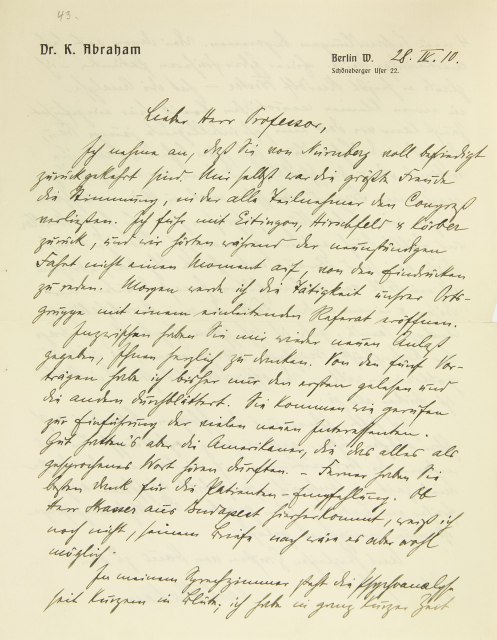 43.
Dr. K. Abraham
Berlin W. 28. IV. 10.
Schöneberger Ufer 22.
Lieber Herr Professor,
Ich nehme an, daß Sie von Nürnberg voll befriedigt
zurückgekehrt sind. Mir selbst war die größte Freude
die Stimmung, in der alle Teilnehmer den Congreß
verließen. Ich fuhr mit Eitingon, Hirschfeld u Körber
zurück, und wir hörten während der neunstündigen
Fahrt nicht einen Moment auf, von den Eindrücken
zu reden. Morgen werde ich die Tätigkeit unsrer Orts-
gruppe mit einem einleitenden Referat eröffnen.
Inzwischen haben Sie mir wieder neuen Anlaß
gegeben, Ihnen herzlich zu danken. Von den fünf Vor-
trägen habe ich bisher nur den ersten gelesen und
die andern durchblättert. Sie kommen wie gerufen
zur Einführung der vielen neuen Interessenten.
Gut hatten's aber die Amerikaner, die das alles als
gesprochenes Wort hören durften. – Ferner haben Sie
besten Dank für die Patienten-Empfehlung. Ob
Herr Strasser aus Budapest hierherkommt, weiß ich
noch nicht, seinem Briefe nach wäre es aber wohl
möglich.
In meinem Sprechzimmer steht die Psychoanalyse
seit Kurzem in Blüte; ich habe in ganz kurzer Zeit